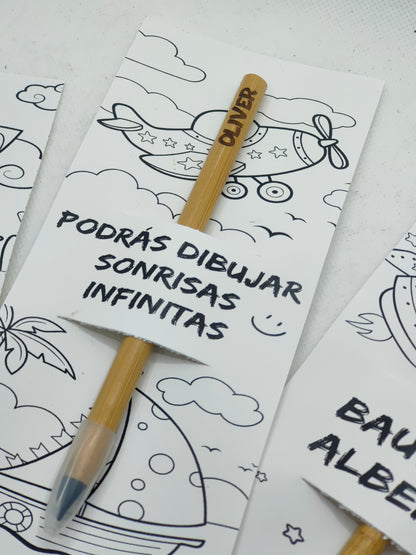 OLIVER
PODRÁS DIBUJAR
SONRISAS
INFINITAS
BAU
ALBE